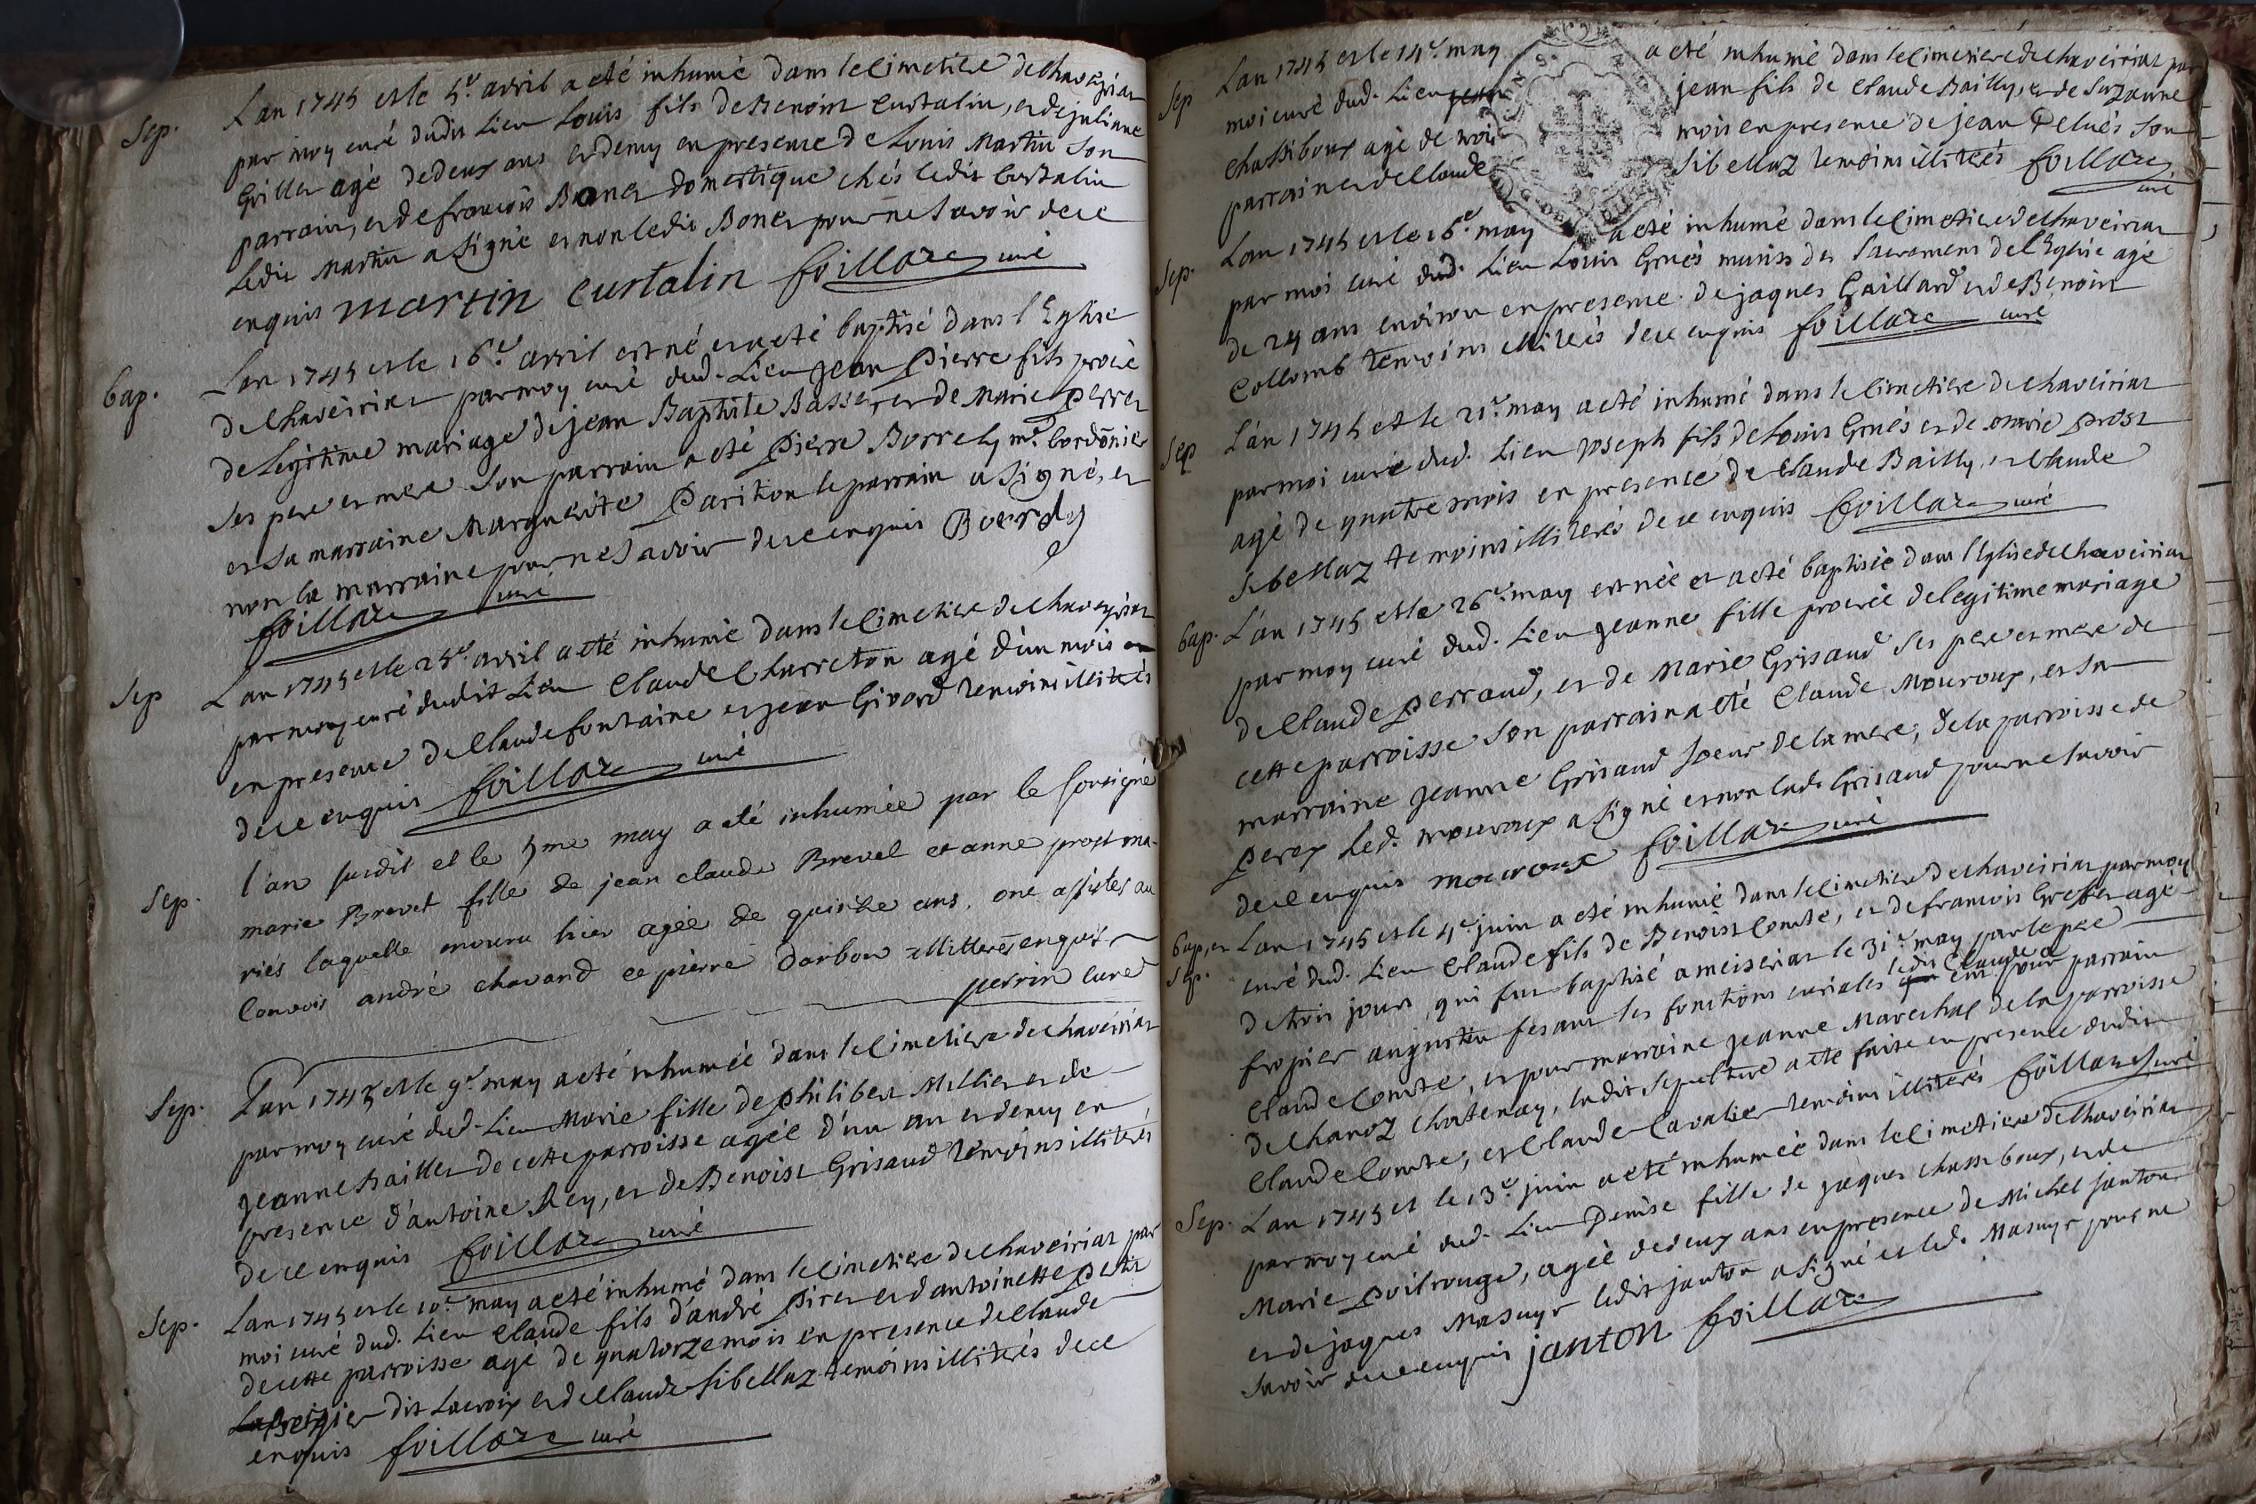 Sep. Lan 1745 et le 5e. avril a eté inhumé dans le Cimetiere de chaveyriat
par moy curé dudit Lieu Louis fils de Benoist Curtalin, et de juliane
Griller agé de deux ans et demy en presence de Louis Martin son
parrain, et de francois Boner domestique chés ledit Curtalin
Ledit Martin a signé et non ledit Boner pour ne savoir de ce
enquis martin curtalin foillaze curé
bap. Lan 1745 et le 16e. avril est né et a eté baptisé dans l'Eglise
de chaveiriat par moy curé dud. Lieu jean Pierre fils procreé
de legitime mariage de jean Baptiste Basset et de Marie Perret
ses pere et mere son parrain a eté Pierre Borrely me. Cordõnier
et sa marraine Marguerite Pariton le parrain a signé, et
non la marraine pour ne savoir de ce enquis Bourdy
foillaze curé
Sep Lan 1745 et le 25e. avril a eté inhumé dans le Cimetiere de chaveyriat
par moy curé dudit Lieu Claude Charreton agé d'un mois
en presence de Claude fontaine et jean Girard temoins illiterés
de ce enquis foillaze curé
Sep. l'an susdit et le 5me may a eté inhumée par le sousigné
marie Brevet fille de jean claude Brevet et anne prost ma-
riés laquelle mouru hier agée de quinze ans. ont assistes au
Convois andré chavand et pierre darbon illitterés enquis
perrin curé
Sep. Lan 1745 et le 9e. may a eté inhumée dans le Cimetiere de chaveiriat
par moy curé dud. Lieu Marie fille de philibert Millier et de
jeanne Bailler de cette parroisse agée d'un an et demy en
presence d'antoine Rey, et de Benoist Grisaud temoins illiterés
de ce enquis foillaze curé
Sep. Lan 1745 et le 10e. may a eté inhumé dans le Cimetiere de chaveiriat par
moi curé dud. Lieu Claude fils d'andré Pirer et d'antoinette Petit
de cette parroisse agé de quatorze mois en presence de Claude
Bergier dit Lacroix et de Claude sibellaz temoins illiterés de ce
enquis foillaze curé
Sep Lan 1745 et le 14e. may a eté inhumé dans le Cimetiere de chaveiriat par
moi curé dud. Lieu jean fils de Claude Bailly, et de Suzanne
Chassiboux agé de trois mois en presence de jean Peluës son
parrain et de Claude sibellaz temoins illiterés foillaze
curé
Sep. Lan 1745 et le 16e. may a eté inhumé dans le Cimetiere de chaveiriat
par moi curé dud. Lieu Louis Gonés munis des Sacremens de l'Eglise agé
de 24 ans environ en presence de jaques Gaillard et de Benoist
Collomb temoins illiterés de ce enquis foillaze curé
Sep L'an 1745 et le 21e. may a eté inhumé dans le Cimetiere de chaveiriat
par moi curé dud. Lieu joseph fils de Louis Gonés et de marie prost
agé de quatre mois en presence de Claude Bailly, et Claude
sibellaz temoins illiterés de ce enquis foillaze curé
bap. L'an 1745 et le 26e. may est née et a eté baptisée dans l'Eglise de chaveiriat
par moy curé dud. Lieu jeanne fille procreée de legitime mariage
de Claude Perraud, et de Marie Grisaud ses pere et mere de
cette parroisse son parrain a eté Claude Mouroux, et sa
marraine jeanne Grisaud soeur de la mere, de la parroisse de
Perex led. mouroux a signé et non lad. Grisaud pour ne savoir
de ce enquis mouroux foillaze curé
bap, et Lan 1745 et le 4e. juin a eté inhumé dans le Cimetiere de chaveiriat par moy
Sep. curé dud. Lieu Claude fils de Benoist Comte, et de francois Greffet agé
de trois jours, qui fut baptisé a meiseriat le 31e. may par le pere
ledit Claude a
frojier augustin fesant les fonctions curiales eut pour parrain
Claude Comte, et pour marraine jeanne Marechal de la parroisse
de Chanoz Chatenay, ladit sepulture a eté faite en presence dudit
Claude Comte, et Claude Cavalier temoins illiterés foillaze curé
Sep. Lan 1745 et le 13e. juin a eté inhumée dans le Cimetiere de chaveiriat
par moy curé dud. Lieu Denise fille de jaques Chassiboux, et de
Marie Poilrouge, agée de deux ans en presence de Michel janton
et de jaques Masuyr ledit janton a signé et led. Masuyr pour ne
savoir de ce enquis janton foillaze